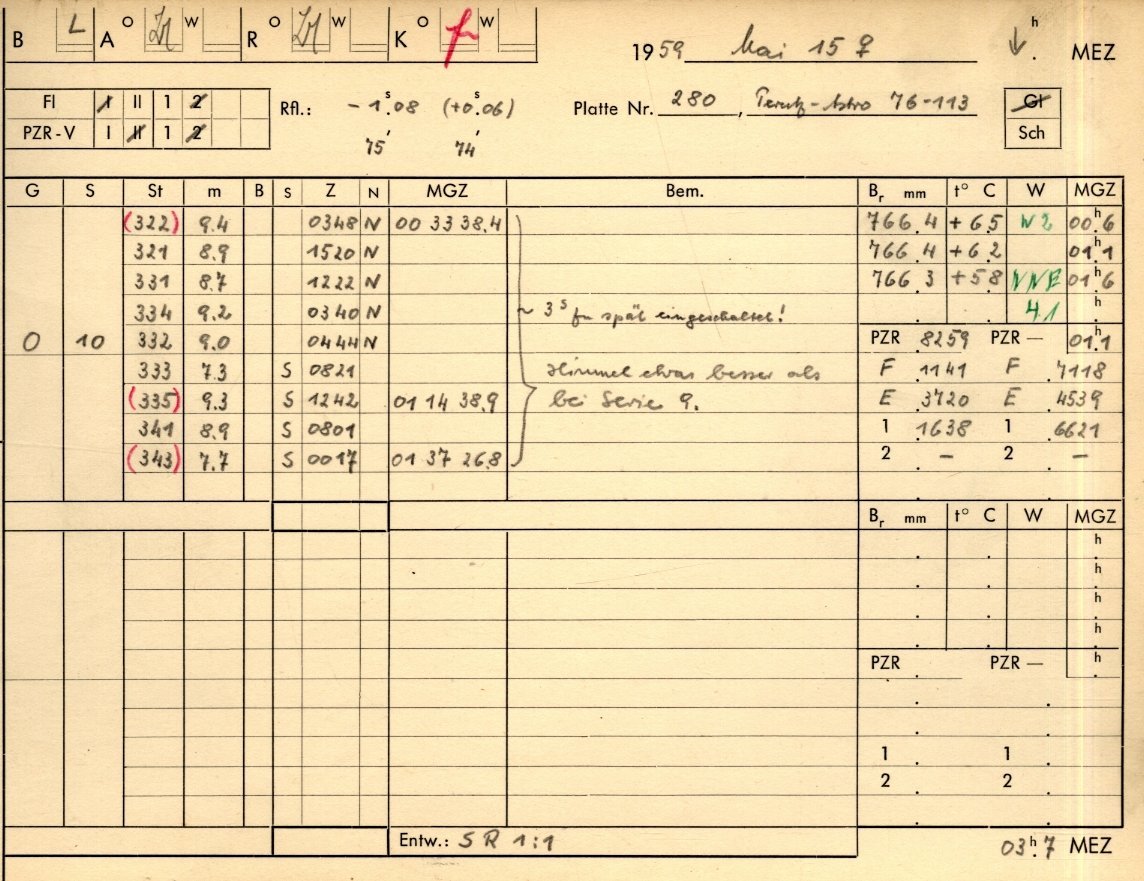 B L A O W R O W K O W
1959 Mai 15 ♀ h MEZ
Fl I II 1 2 Rfl.: - 1ˢ.08 (+0ˢ.06) Platte Nr. 280, Perutz-Astro 76-113 Gl
PZR-V I II 1 2 75' 74' Sch
G S St m B S Z N MGZ Bem. Bᵣ mm t° C W MGZ
(322) 9.4 0348 N 00 33 38.4 766.4 +6.5 N 2 00ʰ.6
321 8.9 1520 N 766.4 +6.2 01ʰ.1
331 8.7 1222 N 766.3 +5.8 NNE 01ʰ.6
334 9.2 0340 N ~ 3ˢ zu spät eingeschaltet! 41 h
0 10 332 9.0 0444 N PZR 8259 PZR — 01ʰ.1
333 7.3 S 0821 Himmel etwas besser als F .1141 F .7118
(335) 9.3 S 1242 01 14 38.9 bei Serie 9. E .3720 E .4539
341 8.9 S 0801 1 .1638 1 .6621
(343) 7.7 S 0017 01 37 26.8 2 – 2 –
Bᵣ mm t° C W MGZ
h
h
h
h
PZR PZR — h
1 1
2 2
Entw.: S R 1:1 03ʰ.7 MEZ